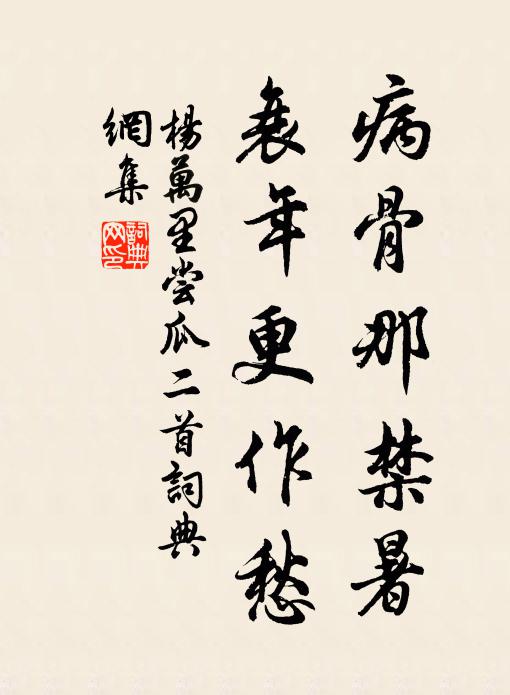 病骨那禁暑
衰年更作愁
楊萬里嘗瓜二首詞典
網集
詞典
网印